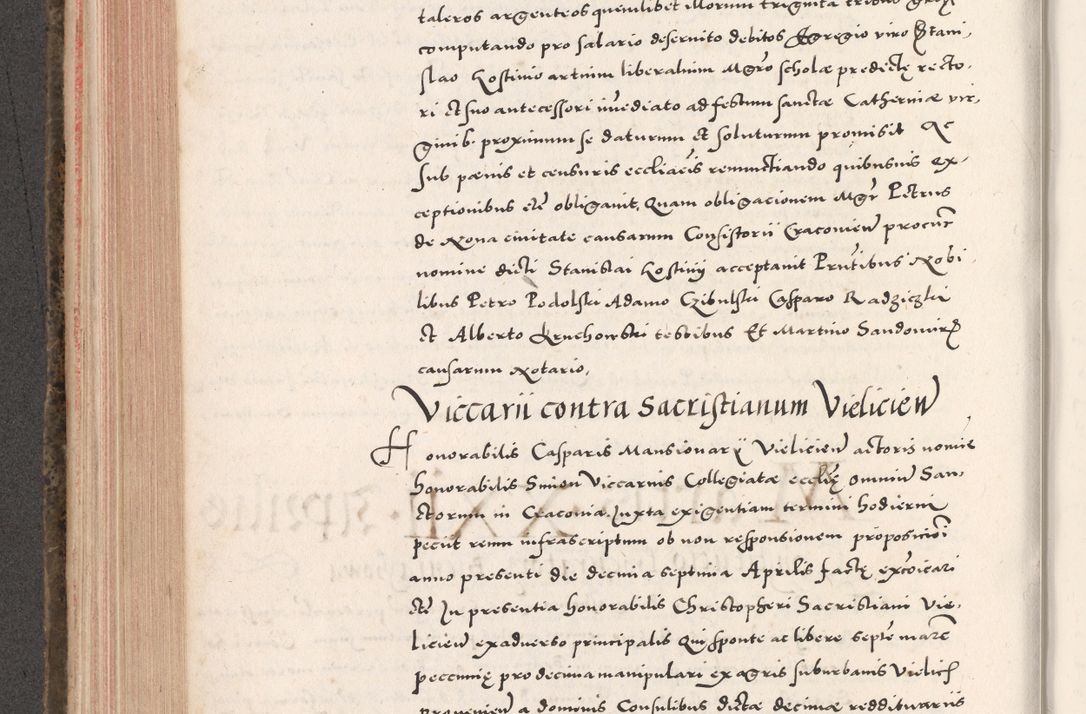 taleros argenteos quemlibet illorum triginta tribus gros
computando pro salario deservito debitos Egregio viro Stani-
slao Hostinio artium liberalium Mgro scholæ predictę recto-
ri et suo antecessori imediato ad festum sanctæ Catherinæ vir-
ginib. proximum se daturum et soluturum promisit Ac
sub pœnis et censuris eccliacis renunctiando quibusuis ex-
ceptionibus etc obligauit, Quam obligacionem Mgr Petrus
de Nona ciuitate causarum Consistorii Cracouien procur
nomine dicti Stanislai Hostinij acceptauit Prntibus Nobi-
libus Petro Podolski Adamo Czibulski Casparo Radziczki
et Alberto Kruchowski testibus Et Martino Sandomir
causarum Notario,
Viccarii contra Sacristianum Vielicien
Honorabilis Casparis Mansionarij Vielicien actoris nomie
honorabilis Simon Viccarius Collegiatæ ecclię omnium San-
ctorum in Cracouia. Juxta exigentiam termini hodierni
peciit reum infrascriptum ob non responsionem proposicioi
anno presenti die decima septima Aprilis factę excoicari
etc In presentia honorabilis Christopheri Sacristiani Vie-
licien ex aduerso principalis Qui sponte ac libere septe marc
peccunię pro decima manipulari ex agris suburbanis Vielicf
prouenien a dominis Consulibus dictæ decimæ reddituariis